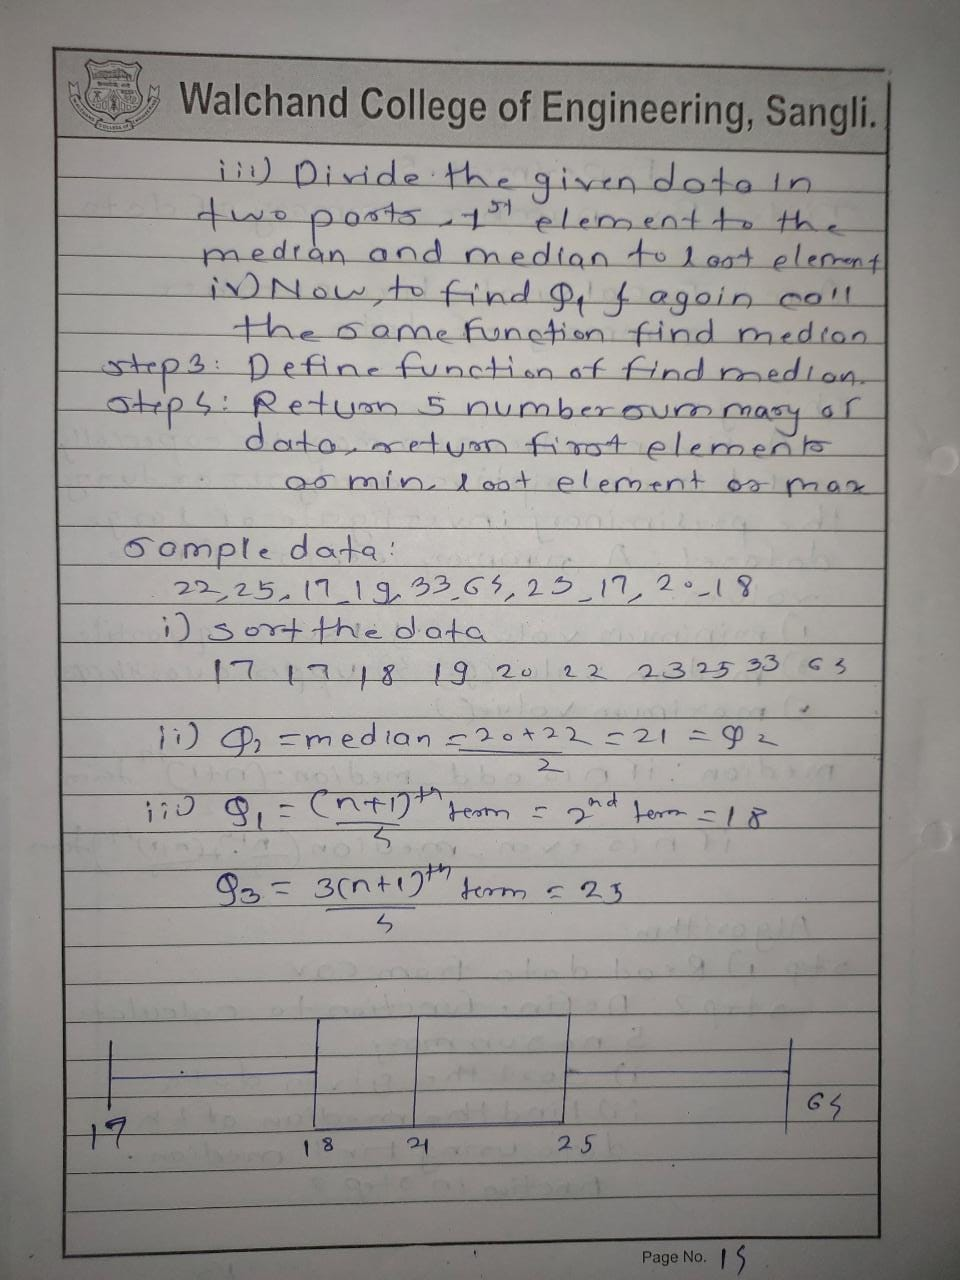 Walchand College of Engineering, Sangli.
iii) Divide the given data in
two parts, 1st element to the
median and median to last element
iv) Now, to find Q1 & again call
the same function find median
step 3: Define function of find median.
step 4: Return 5 number summary of
data, return first elements
as min, last element as max
sample data:
22, 25, 17, 19, 33, 64, 23, 17, 20, 18
i) sort the data
17 17 18 19 20 22 23 25 33 64
ii) Q2 = median = 20+22 = 21 = Q2
2
iii) Q1 = (n+1)th term = 2nd term = 18
4
Q3 = 3(n+1)th term = 25
4
17
18
21
25
64
Page No. 14